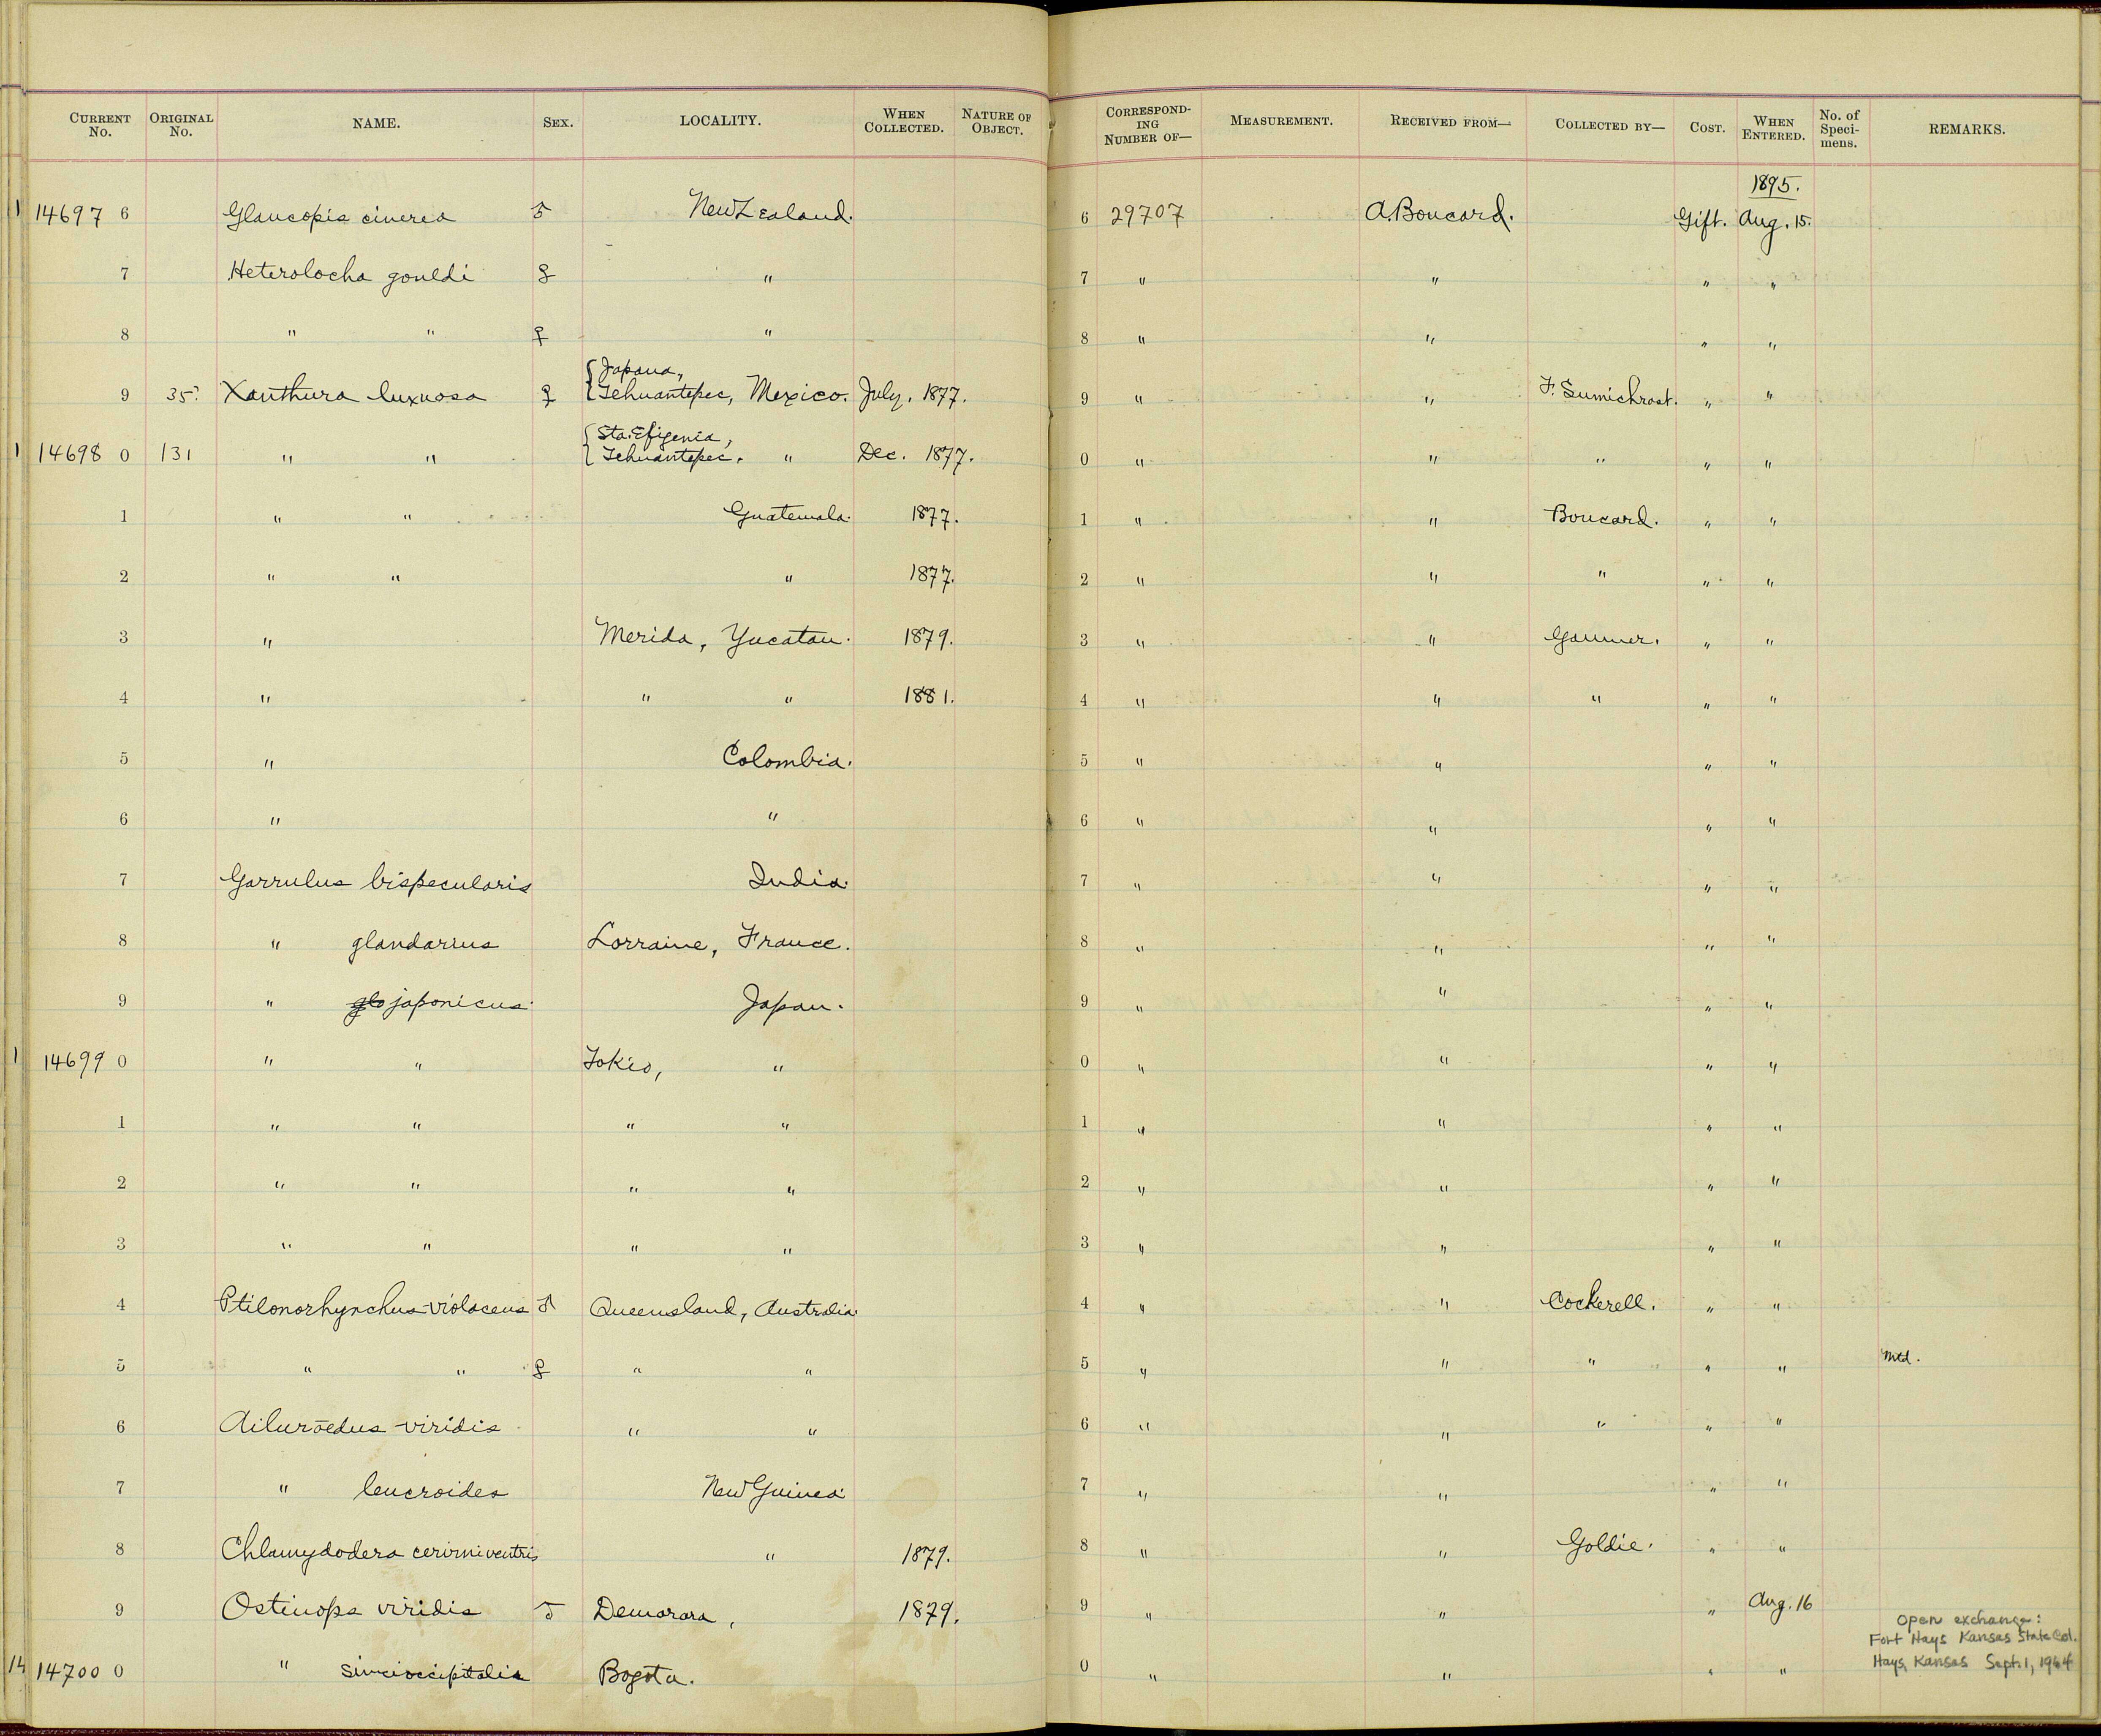 CURRENT No. ORIGINAL No. NAME. SEX. LOCALITY. WHEN COLLECTED. NATURE OF OBJECT. CORRESPONDING NUMBER OF— MEASUREMENT. RECEIVED FROM— COLLECTED BY— COST. WHEN ENTERED. No. of Specimens. REMARKS.
1895.
14697 6 Glaucopis cinerea ♂ New Zealand. 6 29707 A. Boucard. Gift. Aug. 15.
7 Heterolocha gouldi " 7 " " " "
8 " " ♀ " 8 " " " "
9 35. Xanthura luxuosa ♀ { Japana, Tehuantepec, Mexico. July, 1877. 9 " " F. Sumichrast. " "
14698 0 131 " " { Sta. Efigenia, Tehuantepec. " Dec. 1877. 0 " " " " "
1 " " Guatemala. 1877. 1 " " Boucard. " "
2 " " " 1877. 2 " " " " "
3 " Merida, Yucatan. 1879. 3 " " Gaumer. " "
4 " " " 1881. 4 " " " " "
5 " Colombia. 5 " " " "
6 " " 6 " " " "
7 Garrulus bispecularis India. 7 " " " "
8 " glandarius Lorraine, France. 8 " " " "
9 " gla japonicus. Japan. 9 " " " "
14699 0 " " Tokio, " 0 " " " "
1 " " " " 1 " " " "
2 " " " " 2 " " " "
3 " " " " 3 " " " "
4 Ptilonorhynchus violaceus ♂ Queensland, Australia. 4 " " Cockerell. " "
5 " " ♀ " " 5 " " " " " Mtd.
6 Ailuroedus viridis " " 6 " " " " "
7 " leucroides New Guinea. 7 " " " "
8 Chlamydodera cerviniventris " 1879. 8 " " Goldie. " "
9 Ostinops viridis ♂ Demarara, 1879. 9 " " " Aug. 16
Open exchange:
Fort Hays Kansas State Col.
Hays, Kansas Sept. 1, 1964
14700 0 " sincioccipitalis Bogota. 0 " " " "